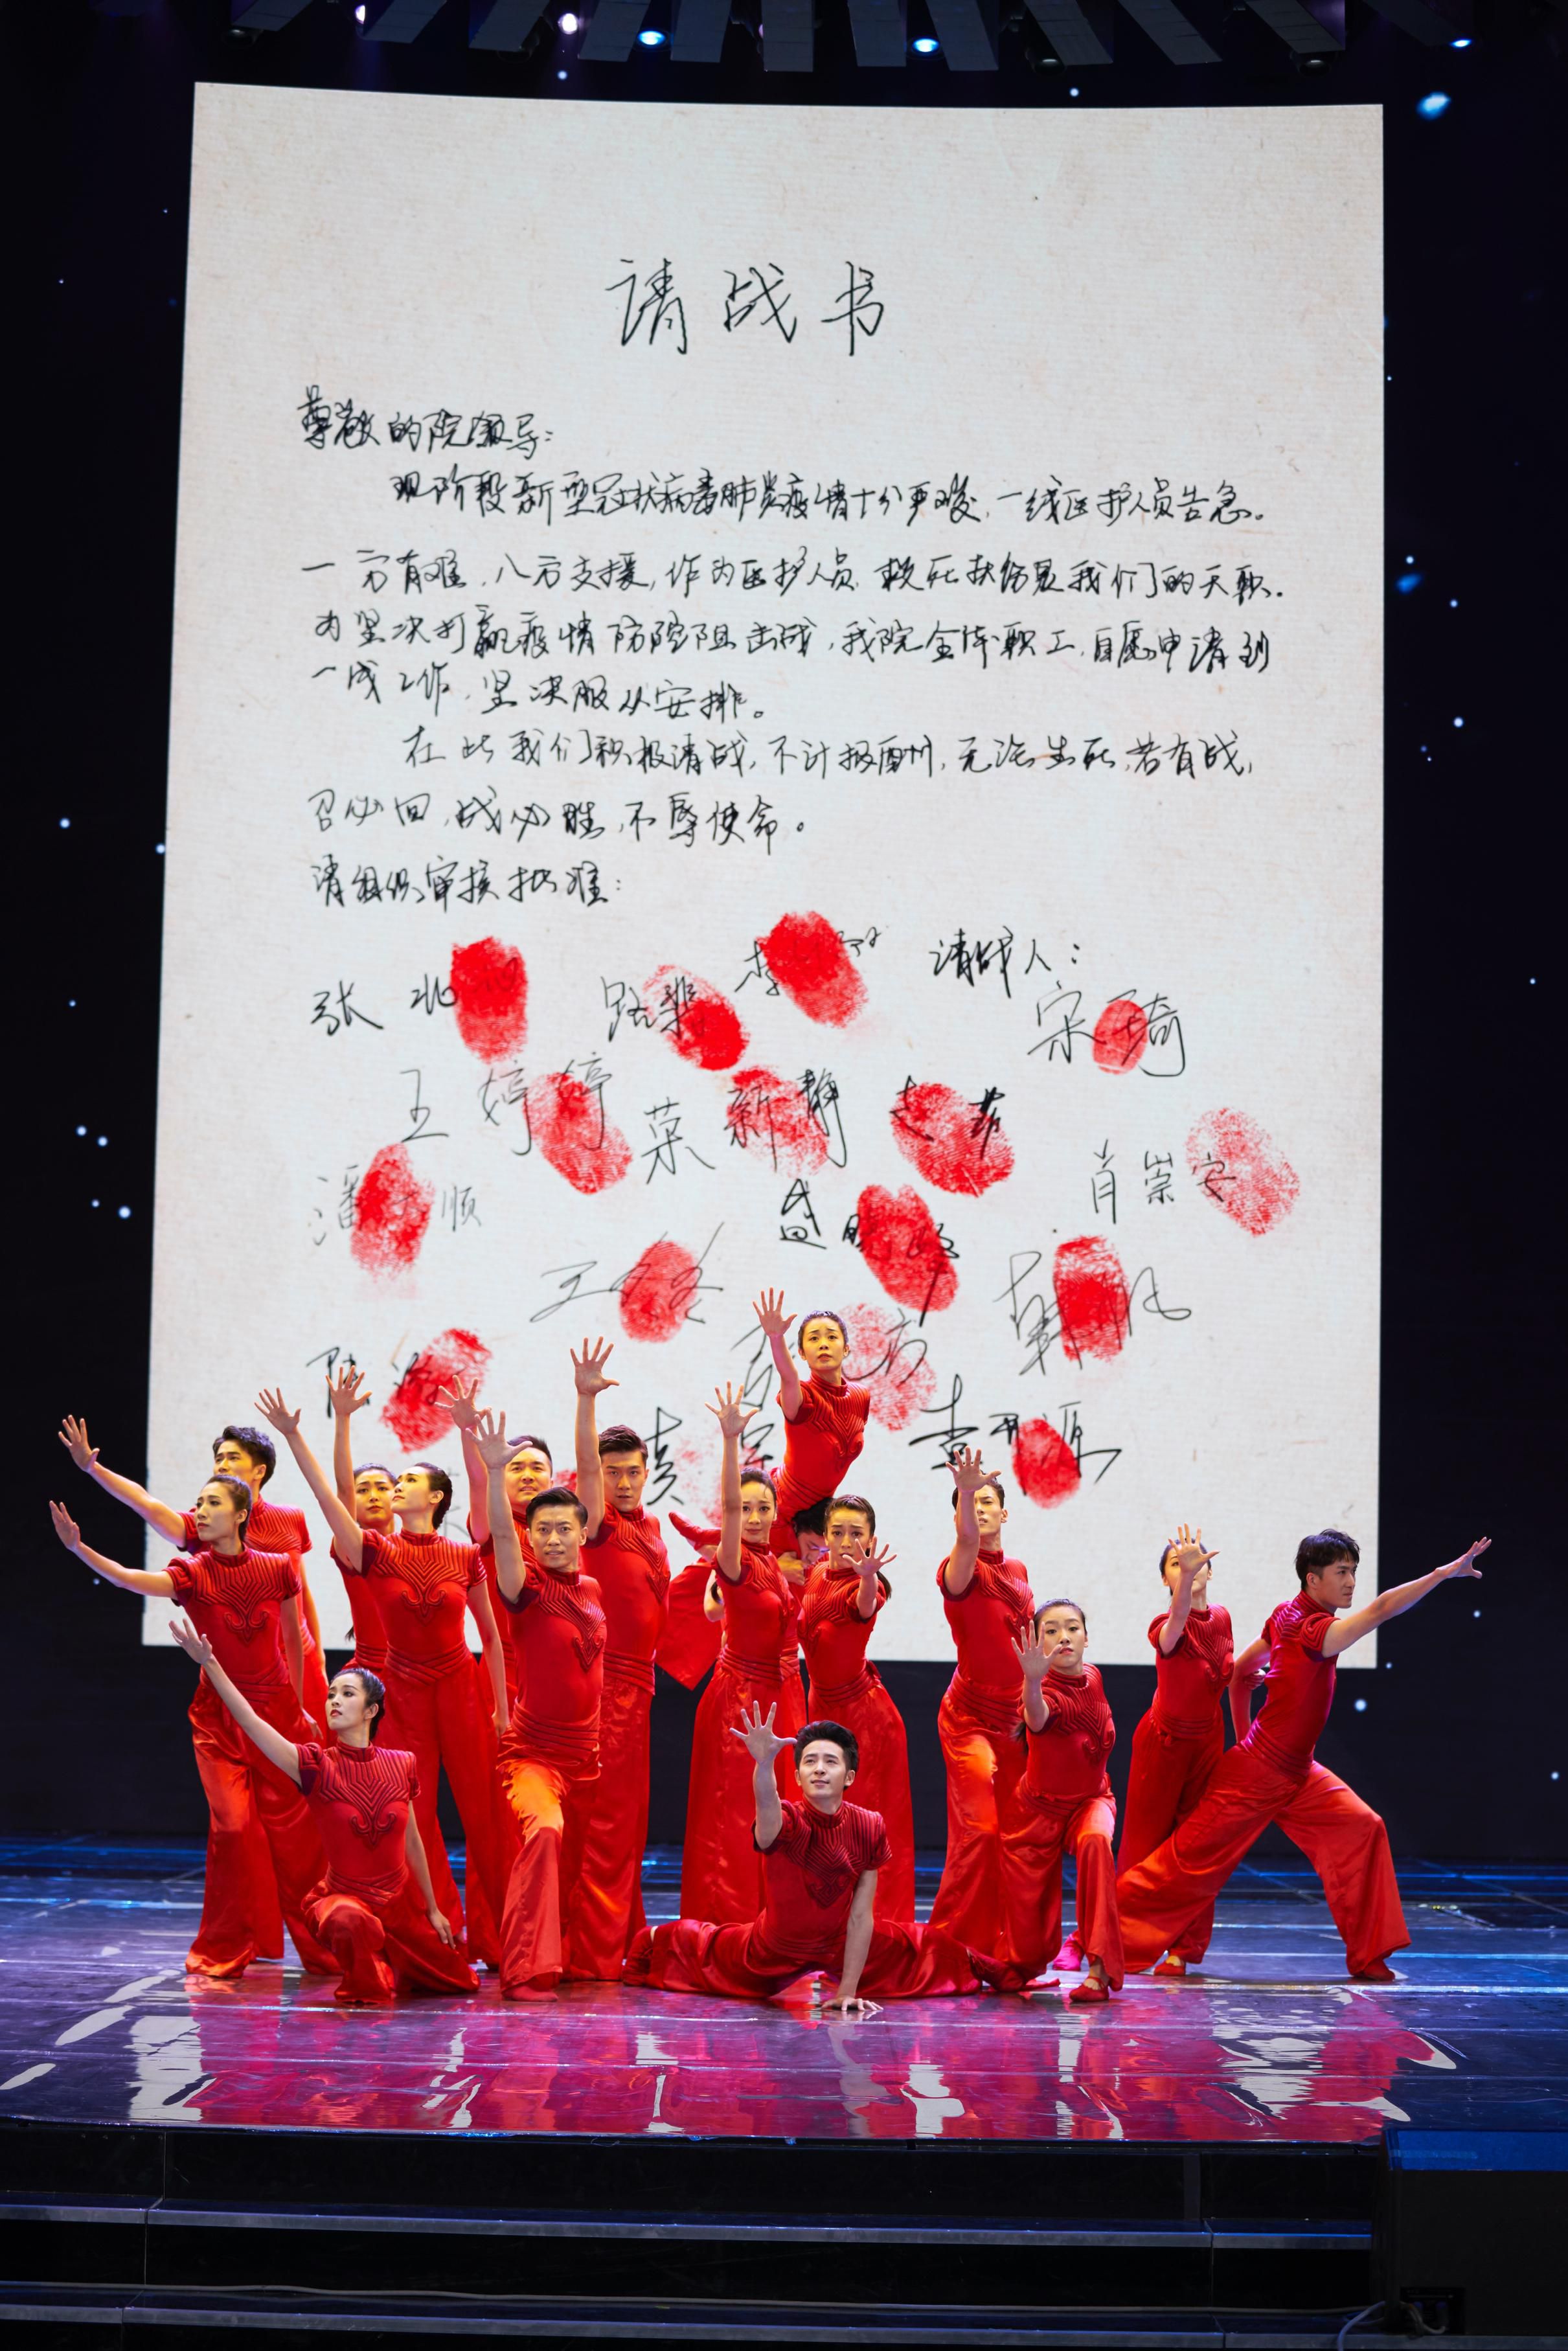 请战书
尊敬的院领导：
现阶段新型冠状病毒肺炎疫情十分严峻，一线医护人员告急。
一方有难，八方支援，作为医护人员，救死扶伤是我们的天职。
为坚决打赢疫情防控阻击战，我院全体职工，自愿申请到
一线工作，坚决服从安排。
在此我们积极请战，不计报酬，无论生死，若有战，
召必回，战必胜，不辱使命。
请组织审核批准：
请战人：
张北
路斐
李
宋琦
王婷婷
荣新静
肖崇安
潘 顺
盛晓峰
王冬
韩凡
方
袁
吉开源